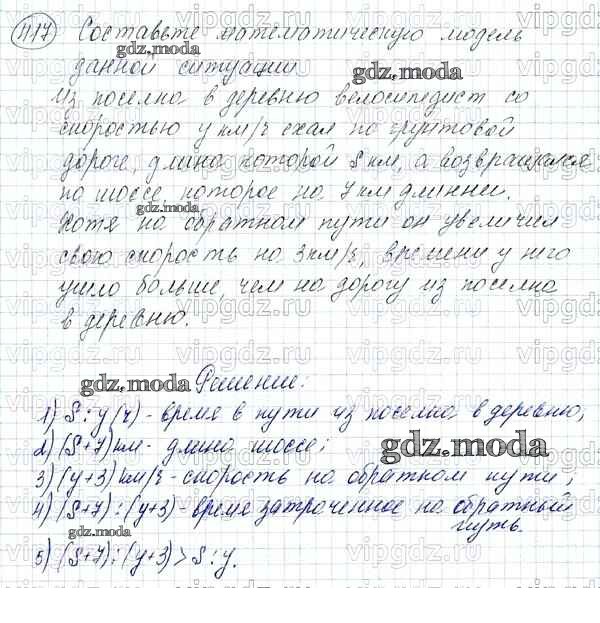 417 Составьте математическую модель
gdz.moda
данной ситуации
gdz.moda
Из поселка в деревню велосипедист со
скоростью y км/ч ехал по грунтовой
дороге, длина которой S км, а возвращался
по шоссе, которое на 7 км длинней.
gdz.moda
Хотя на обратном пути он увеличил
свою скорость на 3 км/ч, времени у него
ушло больше, чем на дорогу из поселка
в деревню.
gdz.moda
Решение:
1) S : y (ч) - время в пути из поселка в деревню;
2) (S+7) км - длина шоссе;
gdz.moda
3) (y+3) км/ч - скорость на обратном пути;
4) (S+7) : (y+3) - время затраченное на обратный
путь.
gdz.moda
5) (S+7) : (y+3) > S : y.
vipgdz.ru